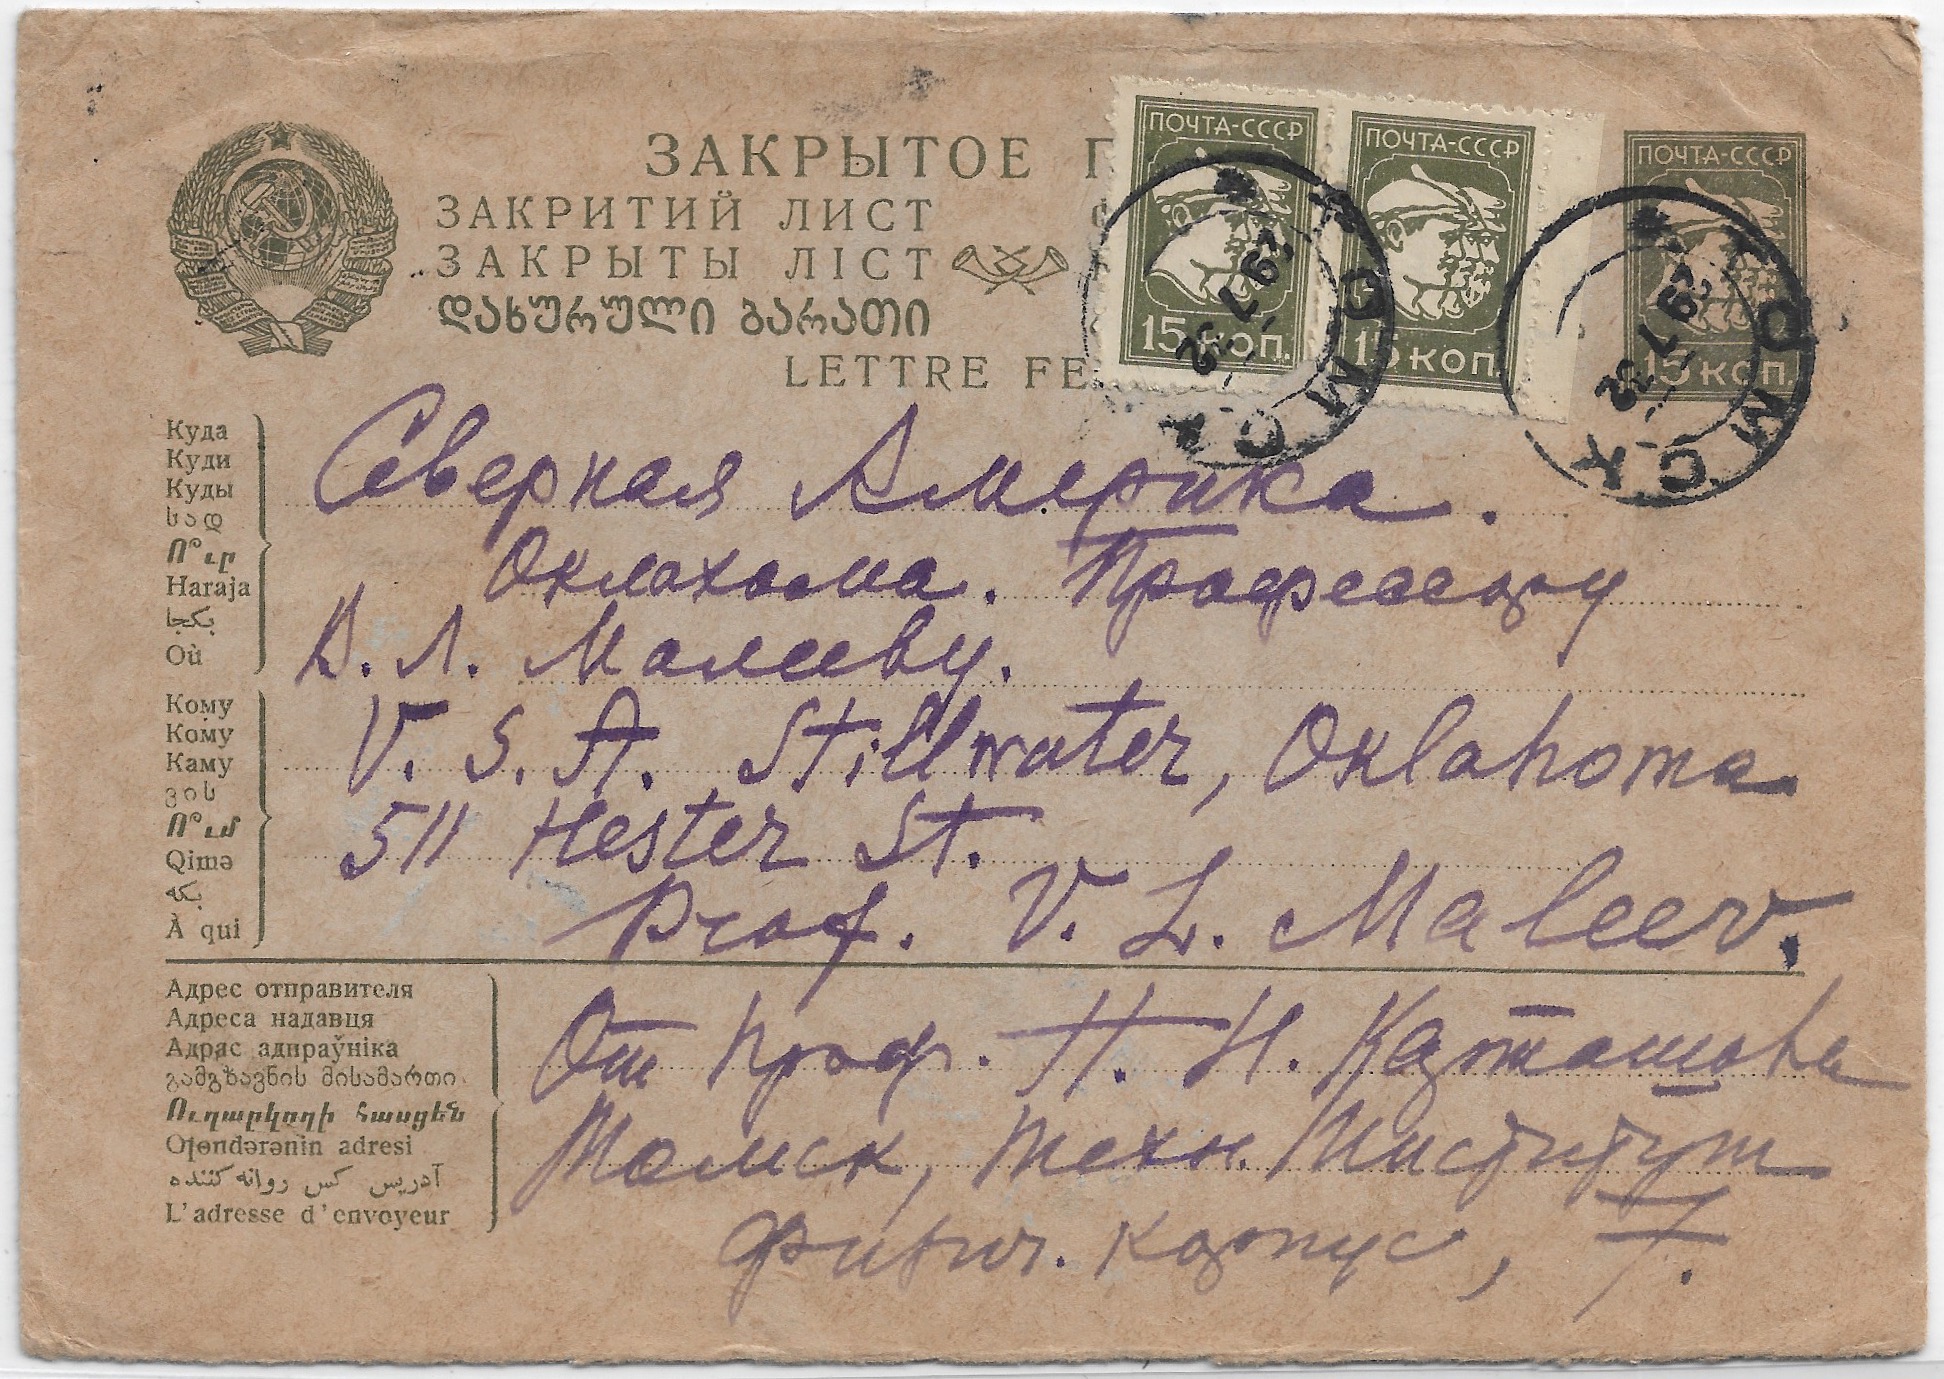 ЗАКРЫТОЕ П
ЗАКРИТИЙ ЛИСТ
ЗАКРЫТЫ ЛІСТ
ᲓᲐᲮᲣᲠᲣᲚᲘ ᲑᲐᲠᲐᲗᲘ
LETTRE FE
ПОЧТА-СССР
15 КОП.
ПОЧТА-СССР
15 КОП.
ПОЧТА-СССР
15 КОП.
ТОМСК
29 7 32
ТОМСК
29 7 32
Куда
Куди
Куды
სად
Ո՞ւր
Haraja
بكجا
Où
Северная Америка.
Оклахома. Профессору
В. Л. Малееву.
Кому
Кому
Каму
ვის
Ո՞ւմ
Qimə
بکه
À qui
V. S. A. Stillwater, Oklahoma
511 Hester St.
Prof. V. L. Maleev.
Адрес отправителя
Адреса надавця
Адрас адпраўніка
გამგზავნის მისამართი
Ուղարկողի հասցեն
Oƣəndərənin adresi
آدریس کس روانه کننده
L'adresse d'envoyeur
От проф. Н. Н. Карташова
Томск, Техн. Институт
Физич. корпус, 7.